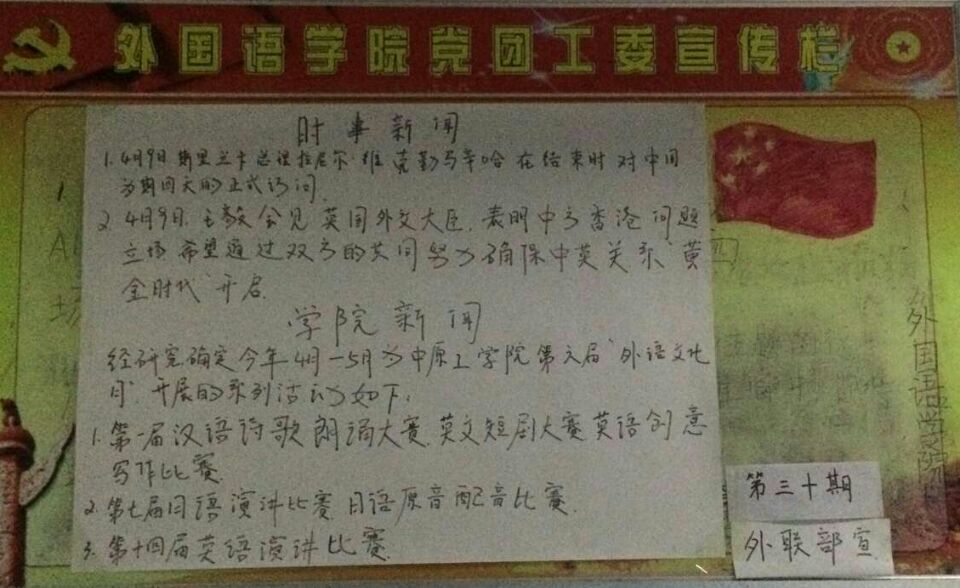 外国语学院党团工委宣传栏
时事新闻
1. 4月9日 斯里兰卡总理拉尼尔·维克勒马辛哈在结束时对中国
为期四天的正式访问
2. 4月9日 王毅会见英国外交大臣. 表明中方香港问题
立场 希望通过双方的共同努力确保中英关系"黄
金时代"开启.
学院新闻
经研究确定今年4月-5月为中原工学院第六届"外语文化
月" 开展的系列活动如下:
1. 第一届汉语诗歌朗诵大赛. 英文短剧大赛 英语创意
写作比赛
2. 第七届日语演讲比赛 日语原音配音比赛.
3. 第十四届英语演讲比赛
外国语学院
第三十期
外联部宣